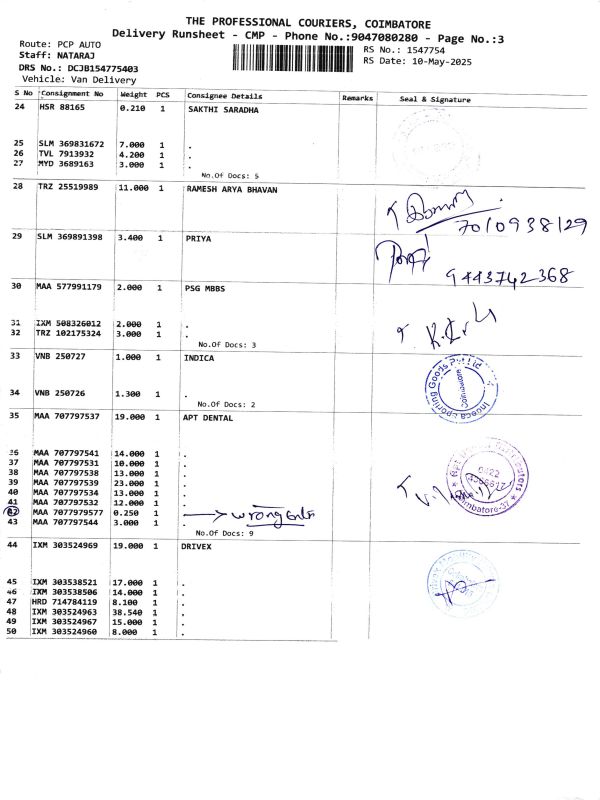 THE PROFESSIONAL COURIERS, COIMBATORE
Delivery Runsheet - CMP - Phone No.:9047080280 - Page No.:3
Route: PCP AUTO
Staff: NATARAJ
DRS No.: DCJB154775403
Vehicle: Van Delivery
RS No.: 1547754
RS Date: 10-May-2025
S No Consignment No Weight PCS Consignee Details Remarks Seal & Signature
24 HSR 88165 0.210 1 SAKTHI SARADHA
25 SLM 369831672 7.000 1 .
26 TVL 7913932 4.200 1 .
27 MYD 3689163 3.000 1 .
No.Of Docs: 5
28 TRZ 25519989 11.000 1 RAMESH ARYA BHAVAN
7010938129
29 SLM 369891398 3.400 1 PRIYA
9443742368
30 MAA 577991179 2.000 1 PSG MBBS
31 IXM 508326012 2.000 1 .
32 TRZ 102175324 3.000 1 .
No.Of Docs: 3
33 VNB 250727 1.000 1 INDICA
34 VNB 250726 1.300 1 .
No.Of Docs: 2
Coimbatore
35 MAA 707797537 19.000 1 APT DENTAL
36 MAA 707797541 14.000 1 .
37 MAA 707797531 10.000 1 .
38 MAA 707797538 13.000 1 .
39 MAA 707797539 23.000 1 .
40 MAA 707797534 13.000 1 .
41 MAA 707797532 12.000 1 .
42 MAA 7077979577 0.250 1 wrong
43 MAA 707797544 3.000 1 .
No.Of Docs: 9
0422
Coimbatore-37
44 IXM 303524969 19.000 1 DRIVEX
45 IXM 303538521 17.000 1 .
46 IXM 303538506 14.000 1 .
47 HRD 714784119 8.100 1 .
48 IXM 303524963 38.540 1 .
49 IXM 303524967 15.000 1 .
50 IXM 303524960 8.000 1 .